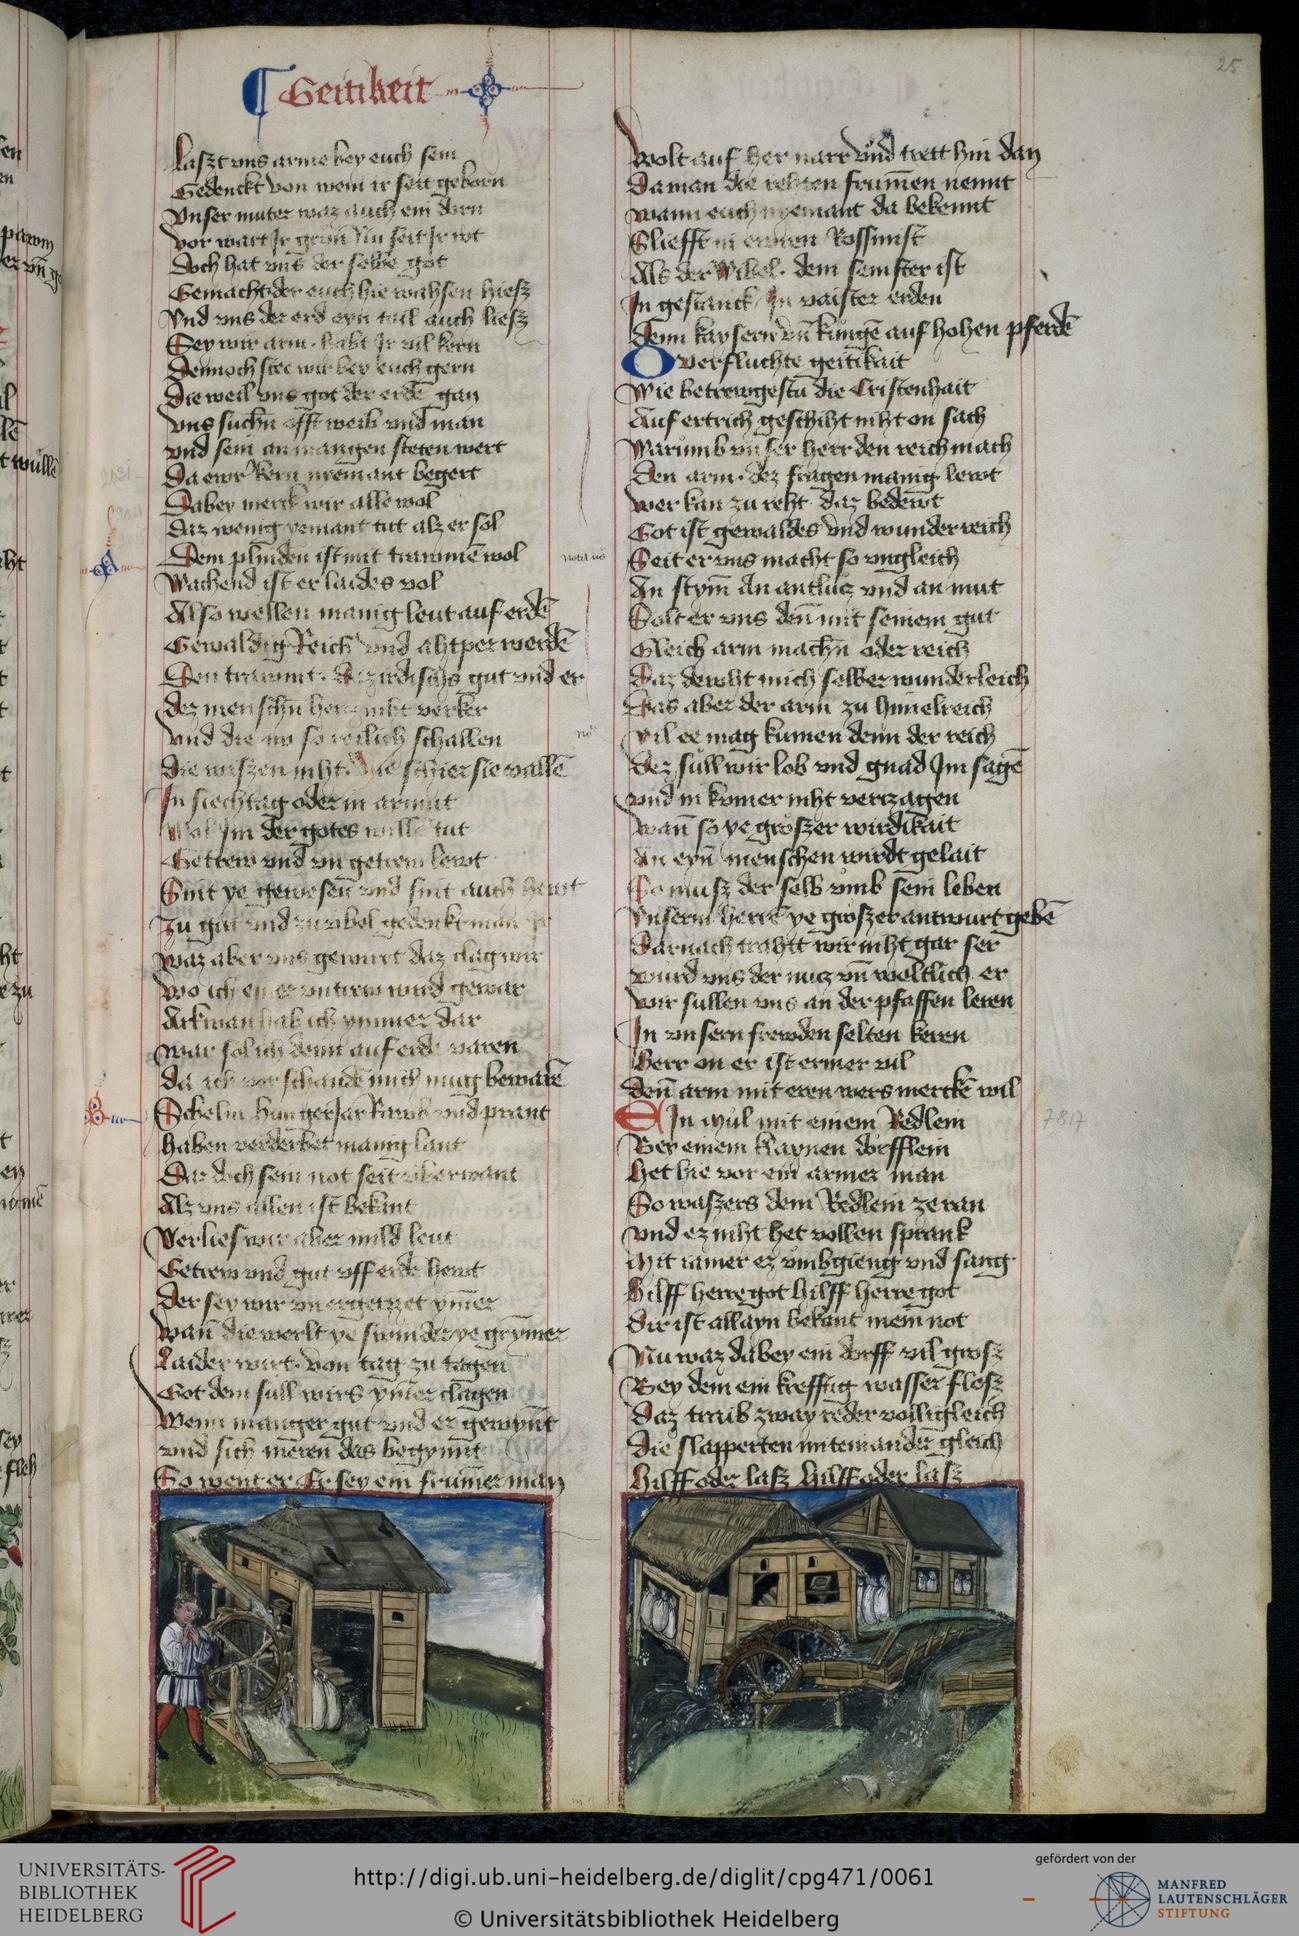 Geitikeit
25
Laszt vns arme bey euch sein
Gedenckt von wem ir seit geborn
Vnser muter waz auch ein dirn
vor wart Jr grün Nu seit Jr rot
Doch hat vns der selbe got
Gemacht der euch hie wahsen hiesz
Vnd vns der erd eyn tail auch liesz
Sey wir arm habt Jr vil kern
Dennoch stee wir bey euch gern
Die weil vns got der erdē gan
vns suchn offt weib vnd man
vnd sein an mangen steten wert
Da ewr kern niemant begert
Dabey merck wir alle wol
daz wenig yemant tut alz er sol
Dem plinden ist mit trawmē wol
Wachend ist er laides vol
Also wellen manig leut auf erdē
Gewaldig Reich vnd ahtper werdē
Den trawmt irdischs gut vnd er
dez menschn hertz niht verker
vnd die nu so schallen
die wiszen niht wie schier sie vallē
In siechtag oder in armut
Wol Jm der gotes wille tut
Getrew vnd vngetrew lewt
Sint ye gewesen vnd sint auch hewt
Zu gut vnd zu vbel gedenkt man Jr
waz aber vns gewirrt daz clag wir
wo ich ein er vntrew wird gewar
Arkwan hab ich ymmer dar
war sol ich denn auf erde varen
da ich vor schandē mich mug bewarē
Schelm hunger Jar Rawb vnd prant
haben verderbet manig lant
Daz doch sein not seit vberwant
Alz vns allen ist bekant
Verlies wir aber mild leut
Getrew vnd gut vff erde hewt
Der sey wir vnergetzet ymer
Wan die werlt ye swinder ye grymer
Laider wirt von tag zu tagen
Got dem süll wirs ymer clagen
Wenn manger gut vnd er gewynt
vnd sich meren das begynnt
So went er Er sey ein frumer man
Wolt auf her narr vnd trett hin dan
Da man die rehten frummen nennt
wann euch nyemant da bekennt
Slieft in ewren Rossmist
Als der Wibel dem senfter ist
In gestanck Jn vaister erden
denn kaysern vn kungē auf hohen pferdē
O verfluchte geitikait
Wie betrewgestu die Cristenhait
Auf ertrich geschiht niht on sach
Warumb vnser herr den reich mach
Den arm dez fragen manig lewt
wer kan zu reht daz bedewt
Got ist gewaldes vnd wunder reich
Seit er vns macht so vngleich
An stym An antlütz vnd an mut
Solt er vns den mit seinem gut
Gleich arm machn oder reich
Daz dewht mich selber wunderleich
Das aber der arm zu himelreich
vil ee mag kumen denn der reich
dez süll wir lob vnd gnad Jm sagē
vnd in komer niht verzagen
wan so ye groszer wirdikait
An eyn menschen wirdt gelait
So musz der selb vmb sein leben
Vnserm herrē ye groszer antwurt gebē
Darnach traht wir niht gar ser
würd vns der nutz vn woltlich er
wir sullen vns an der pfaffen leren
In vnsern frewden selten keren
Herr on er ist ermer vil
den arm mit eren wers merckē wil
EIn mül mit einem Redlein
Bey einem klaynen dorfflein
Het hie vor ein armer man
So waszers dem Redlein zeran
vnd ez niht het vollen sprank
Mit iamer ez vmbgieng vnd sang
Hilff herre got hilff herre got
dir ist allayn bekant mein not
Nu waz dabey ein dorff vil grosz
Bey dem ein krefftig wasser flosz
daz traib zway reder volligleich
die slapperten miteinander gleich
Hilff oder lasz Hilff oder lasz
7817
UNIVERSITÄTS-
BIBLIOTHEK
HEIDELBERG
http://digi.ub.uni-heidelberg.de/diglit/cpg471/0061
© Universitätsbibliothek Heidelberg
gefördert von der
MANFRED
LAUTENSCHLÄGER
STIFTUNG